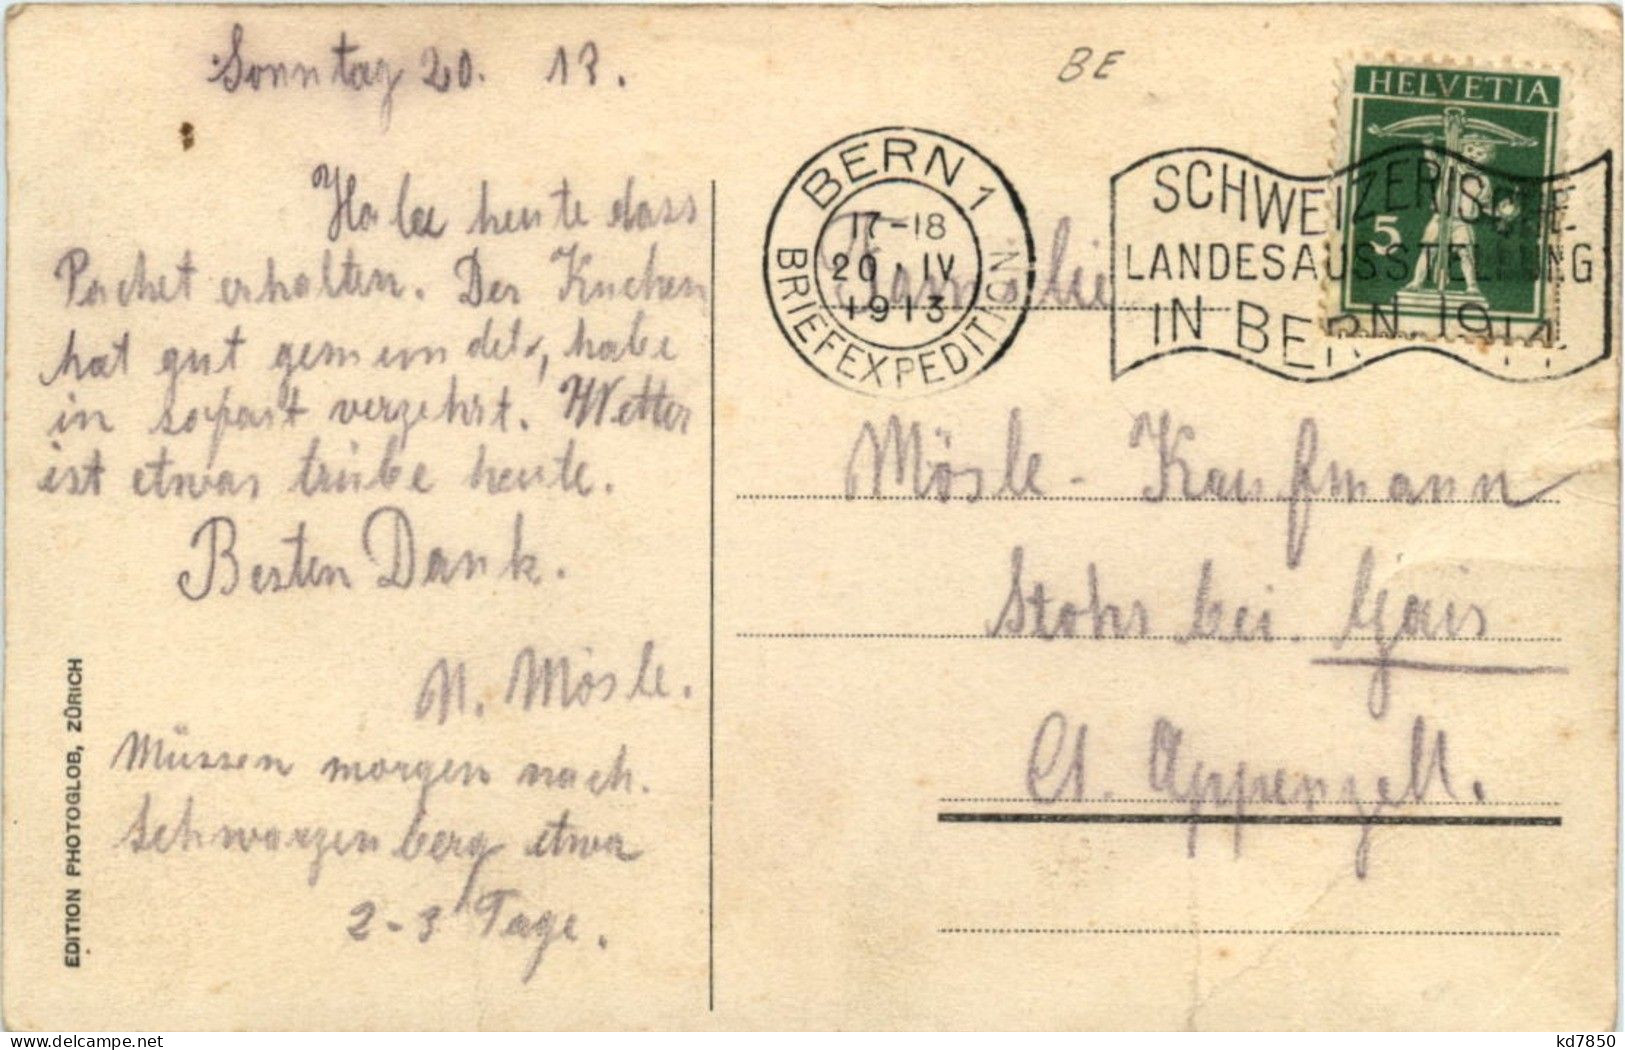 Sonntag 20. 13.
BE
Habe heute dass
Packet erhalten. Der Kuchen
hat gut gemundet, habe
in sofort verzehrt. Wetter
ist etwas trübe heute.
Besten Dank.
M. Mösle.
Müssen morgen nach.
Schwarzenberg etwa
2-3 Tage.
EDITION PHOTOGLOB, ZÜRICH
HELVETIA
5
BERN 1
17-18
20.IV
1913
BRIEFEXPEDITION
SCHWEIZERISCHE
LANDESAUSSTELLUNG
IN BERN 1914
Familie
Mösle-Kaufmann
Stohs bei Gais
Ct. Appenzell.
kd7850